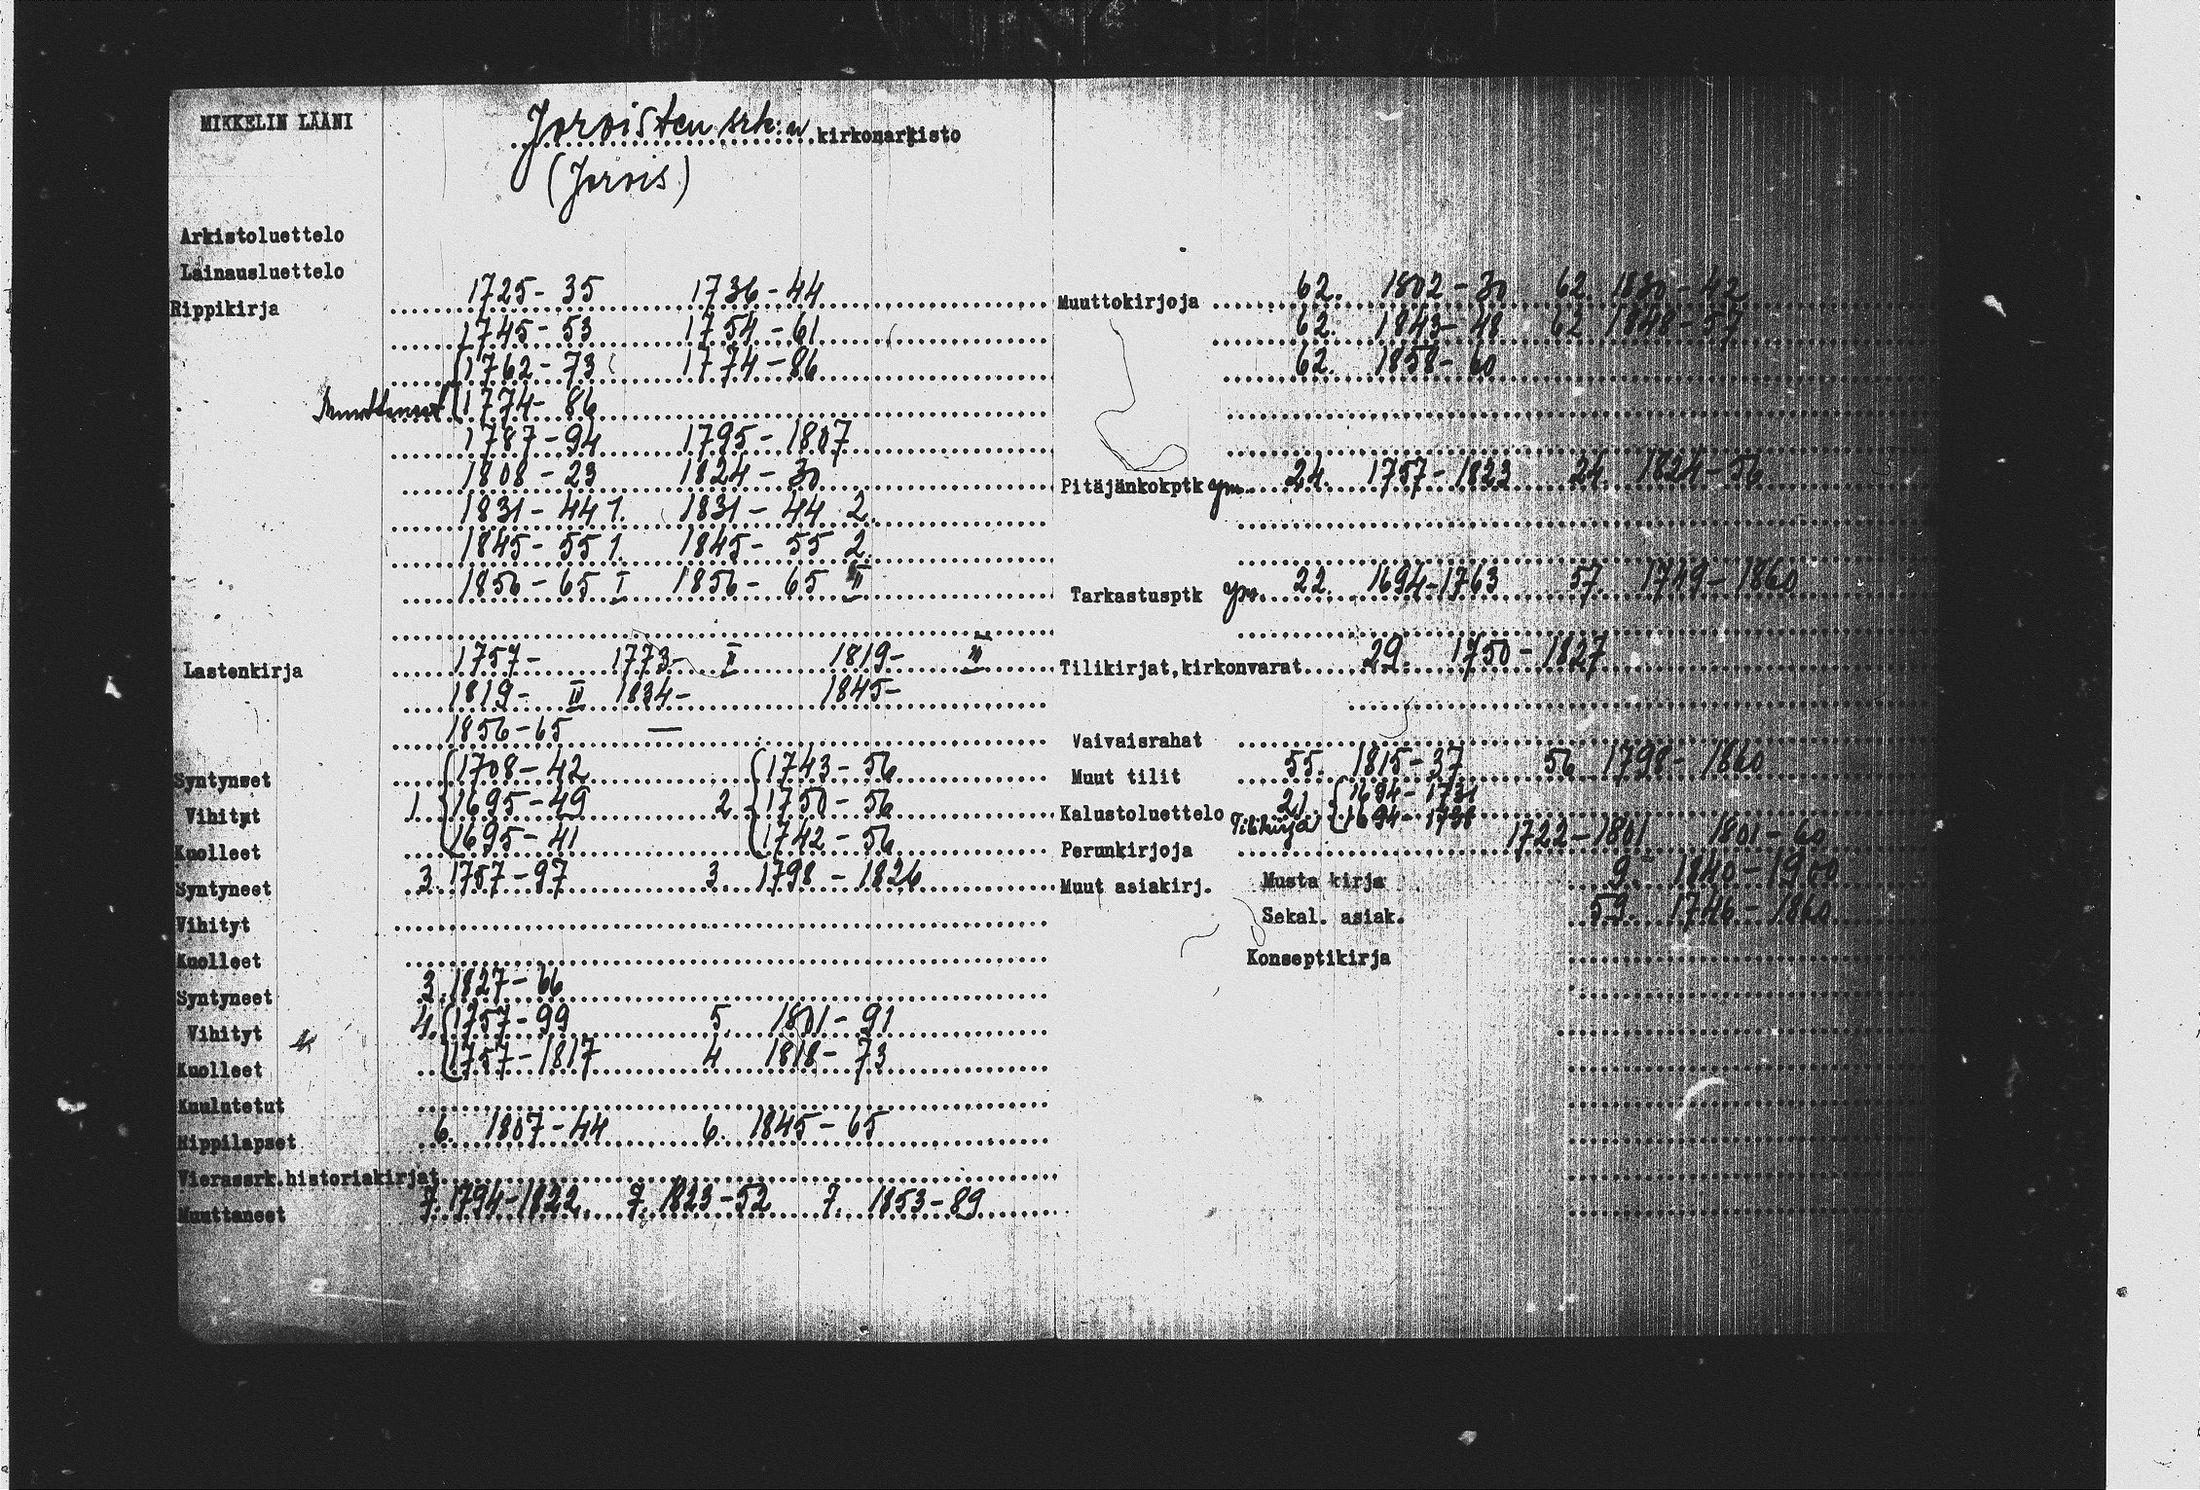 MIKKELIN LÄÄNI
Joroisten srk:n kirkonarkisto
(Jorois)
Arkistoluettelo
Lainausluettelo
Rippikirja 1725-35 1736-44
1745-53 1754-61
1762-73 1774-86
Muuttaneet 1774-86
1787-94 1795-1807
1808-23 1824-30
1831-44 1. 1831-44 2.
1845-55 1. 1845-55 2.
1856-65 I 1856-65 II
Lastenkirja 1757- 1773- I 1819- II
1819- II 1834- 1845-
1856-65 —
Syntyneet 1708-42 1743-56
Vihityt 1 1695-49 2 1750-56
Kuolleet 1695-41 1742-56
Syntyneet 3. 1757-97 3. 1798-1826
Vihityt
Kuolleet
Syntyneet 3. 1827-66
Vihityt 4. 1757-99 5. 1801-91
Kuolleet 1757-1817 4 1818-73
Kuulutetut
Rippilapset 6. 1807-44 6. 1845-65
Vierassrk.historiakirjat
Muuttaneet 7. 1794-1822. 7. 1823-52 7. 1853-89
Muuttokirjoja 62. 1802-30 62. 1830-42
62. 1843-48 62 1848-57
62. 1858-60
Pitäjänkokptk ym. 24. 1757-1823 24. 1824-56
Tarkastusptk ym. 22. 1694-1763 57. 1749-1860
Tilikirjat,kirkonvarat 29. 1750-1827
Vaivaisrahat
Muut tilit 55. 1815-37 56 1798-1860
Kalustoluettelo Tilikirja 21. 1694-1731
1694-1738
Perunkirjoja 1722-1801 1801-60
Muut asiakirj. Musta kirja 9. 1840-1900
Sekal. asiak. 59. 1746-1860
Konseptikirja